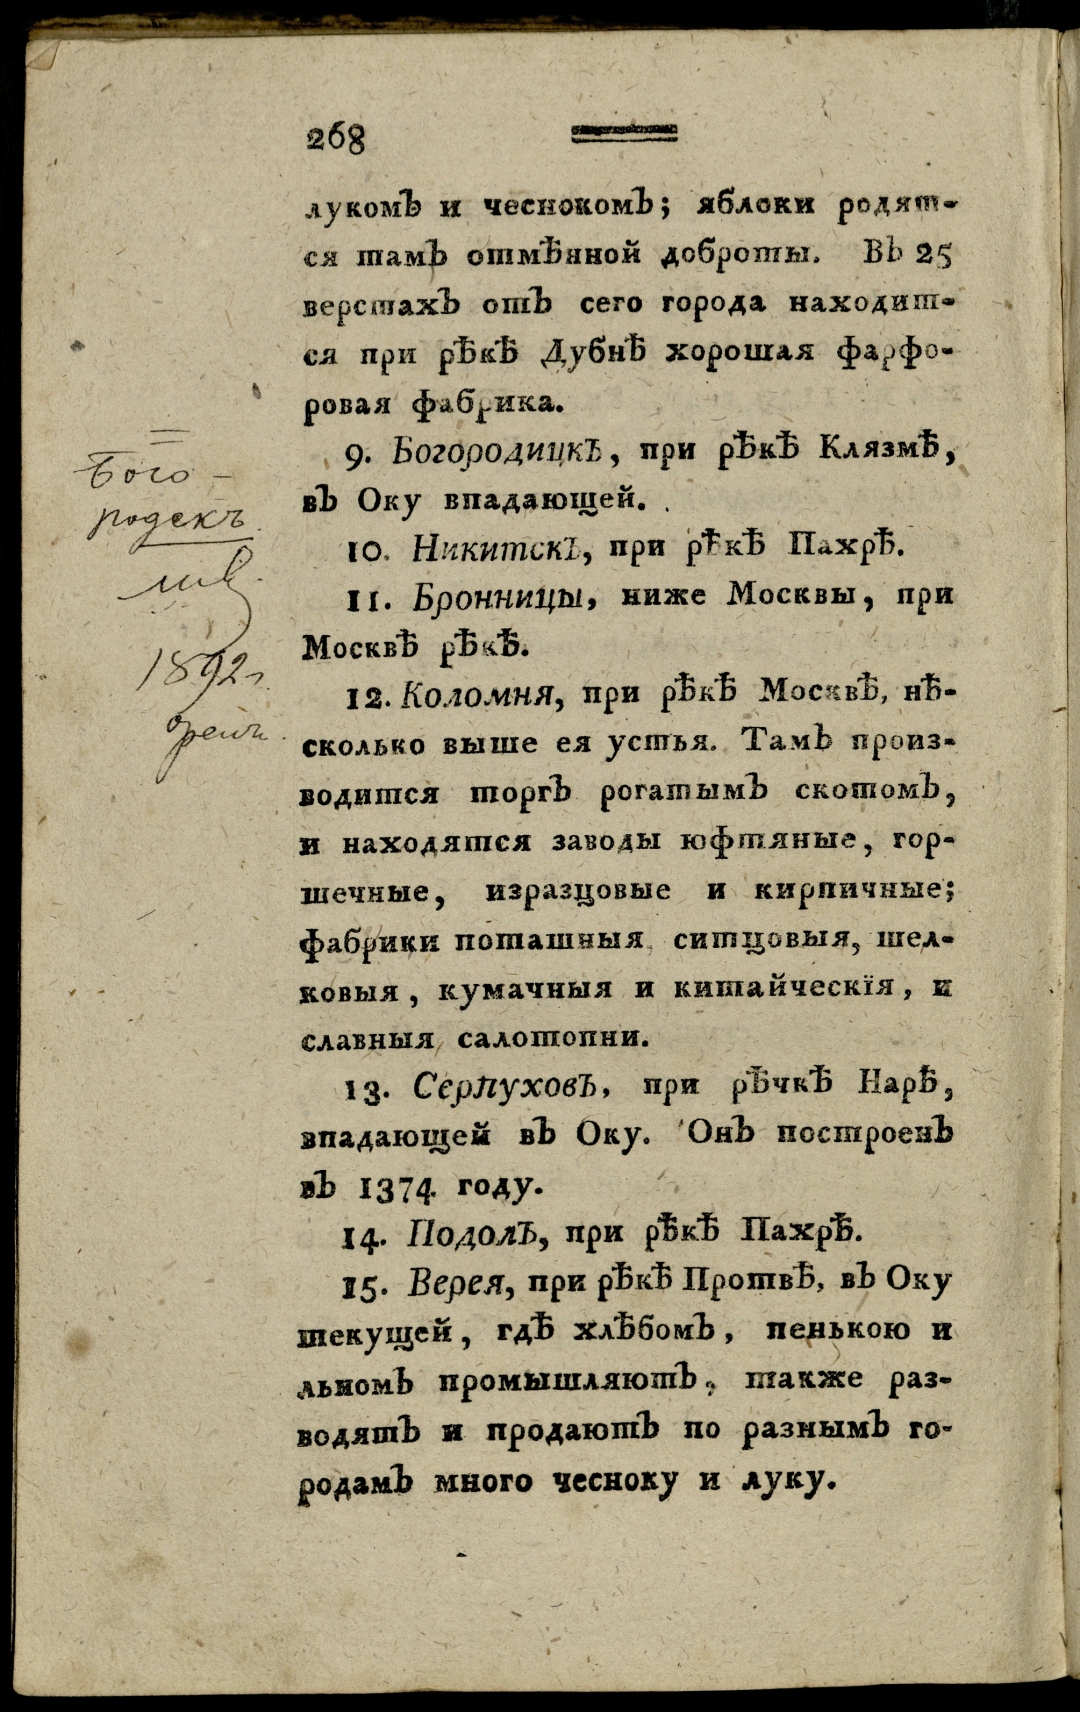 268
лукомъ и чеснокомъ; яблоки родят-
ся тамъ отмѣнной доброты. Въ 25
верстахъ отъ сего города находит-
ся при рѣкѣ Дубнѣ хорошая фарфо-
ровая фабрика.
9. Богородицкъ, при рѣкѣ Клязмѣ,
въ Оку впадающей.
10. Никитскъ, при рѣкѣ Пахрѣ.
11. Бронницы, ниже Москвы, при
Москвѣ рѣкѣ.
12. Коломня, при рѣкѣ Москвѣ, нѣ-
сколько выше ея устья. Тамъ произ-
водится торгъ рогатымъ скотомъ,
и находятся заводы юфтяные, гор-
шечные, изразцовые и кирпичные;
фабрики поташныя, ситцовыя, шел-
ковыя, кумачныя и китайческія, и
славныя салотопни.
13. Серпуховъ, при рѣчкѣ Нарѣ,
впадающей въ Оку. Онъ построенъ
въ 1374 году.
14. Подолъ, при рѣкѣ Пахрѣ.
15. Верея, при рѣкѣ Протвѣ, въ Оку
текущей, гдѣ хлѣбомъ, пенькою и
льномъ промышляютъ, также раз-
водятъ и продаютъ по разнымъ го-
родамъ много чесноку и луку.
Бого-
родскъ
1892г.